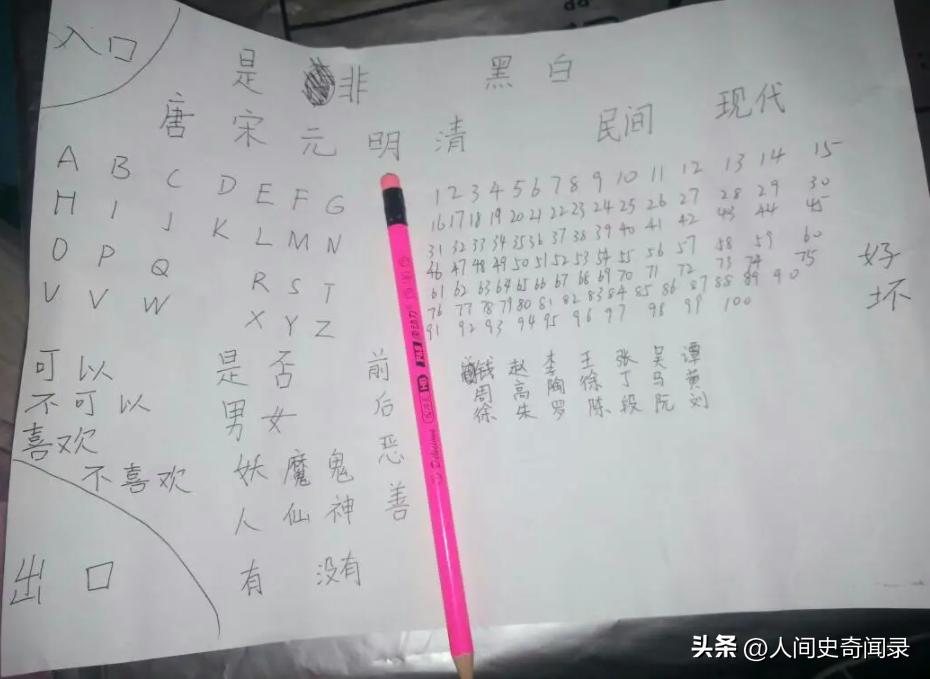 入口
是 非 黑 白
唐 宋 元 明 清 民间 现代
A B C D E F G
H I J K L M N
O P Q R S T
V V W X Y Z
1 2 3 4 5 6 7 8 9 10 11 12 13 14 15
16 17 18 19 20 21 22 23 24 25 26 27 28 29 30
31 32 33 34 35 36 37 38 39 40 41 42 43 44 45
46 47 48 49 50 51 52 53 54 55 56 57 58 59 60
61 62 63 64 65 66 67 68 69 70 71 72 73 74 75
76 77 78 79 80 81 82 83 84 85 86 87 88 89 90
91 92 93 94 95 96 97 98 99 100
好
坏
可以 是 否 前
不可以 男 女 后
喜欢
不喜欢 妖 魔 鬼 恶
人 仙 神 善
钱 赵 李 王 张 吴 谭
周 高 陶 徐 丁 马 黄
徐 朱 罗 陈 段 阮 刘
出口 有 没有
头条 @人间史奇闻录